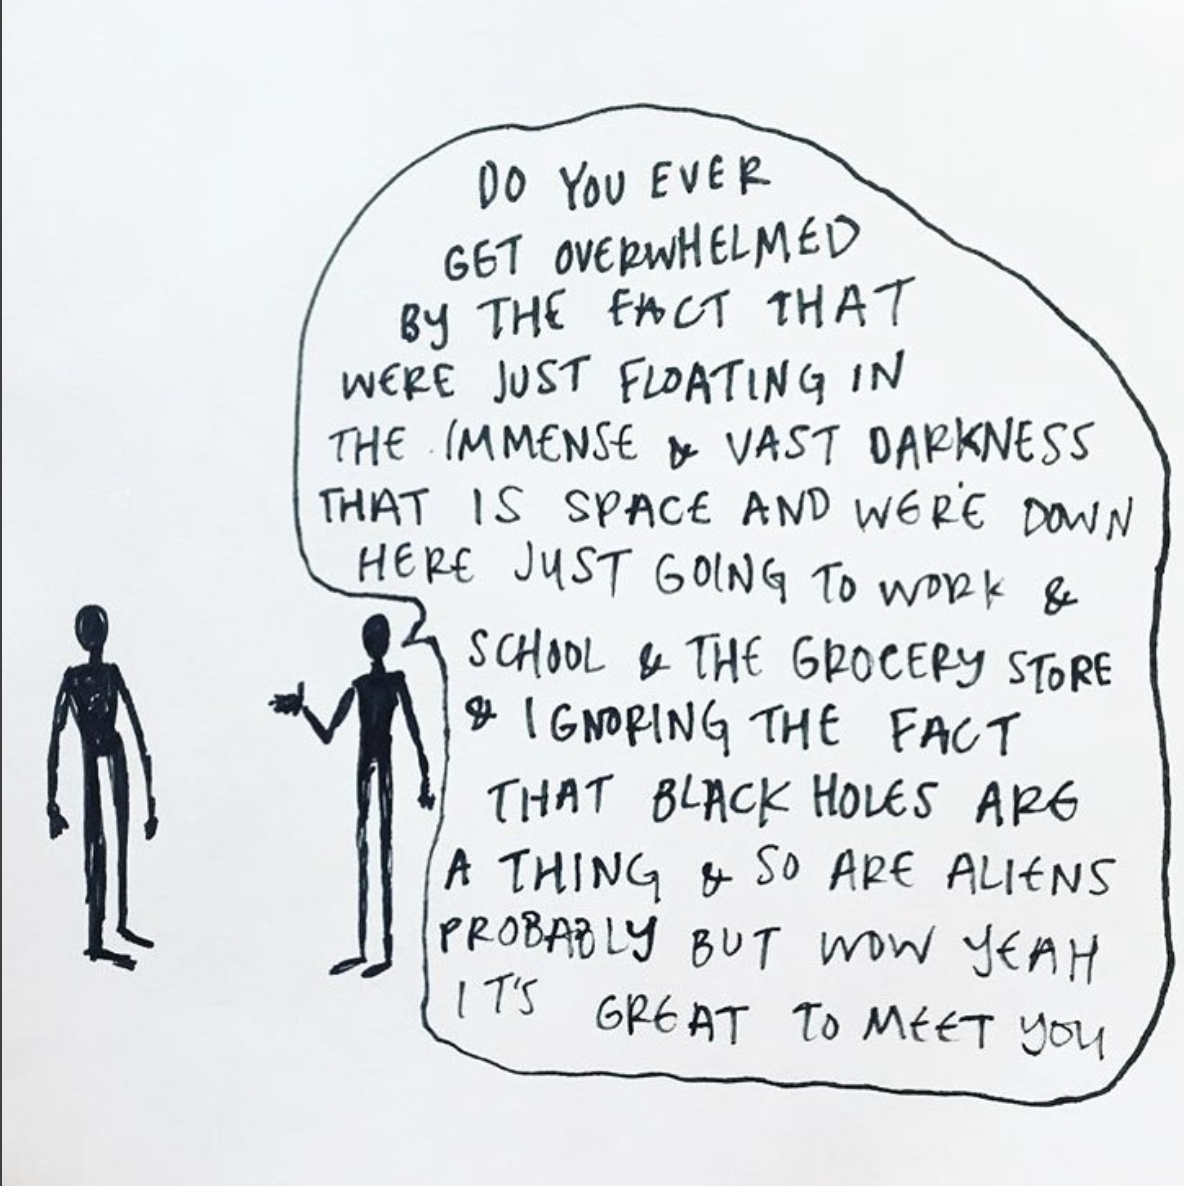 DO YOU EVER
GET OVERWHELMED
BY THE FACT THAT
WERE JUST FLOATING IN
THE IMMENSE & VAST DARKNESS
THAT IS SPACE AND WERE DOWN
HERE JUST GOING TO WORK &
SCHOOL & THE GROCERY STORE
& IGNORING THE FACT
THAT BLACK HOLES ARE
A THING & SO ARE ALIENS
PROBABLY BUT WOW YEAH
IT'S GREAT TO MEET YOU